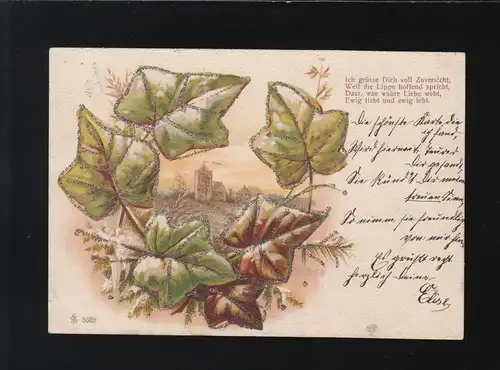 Ich grüsse Dich voll Zuversicht,
Weil die Lippe hoffend spricht,
Dass, was wahre Liebe webt,
Ewig liebt und ewig lebt.
Die schönste Karte die
ich fand
Wird hiermit, teurer
Dir gesandt
Sie kündt Dir meinen
treuen Sinn
So nimm sie freundlich
von mir hin
Es grüßt recht
herzlich Deine
Elise
5660